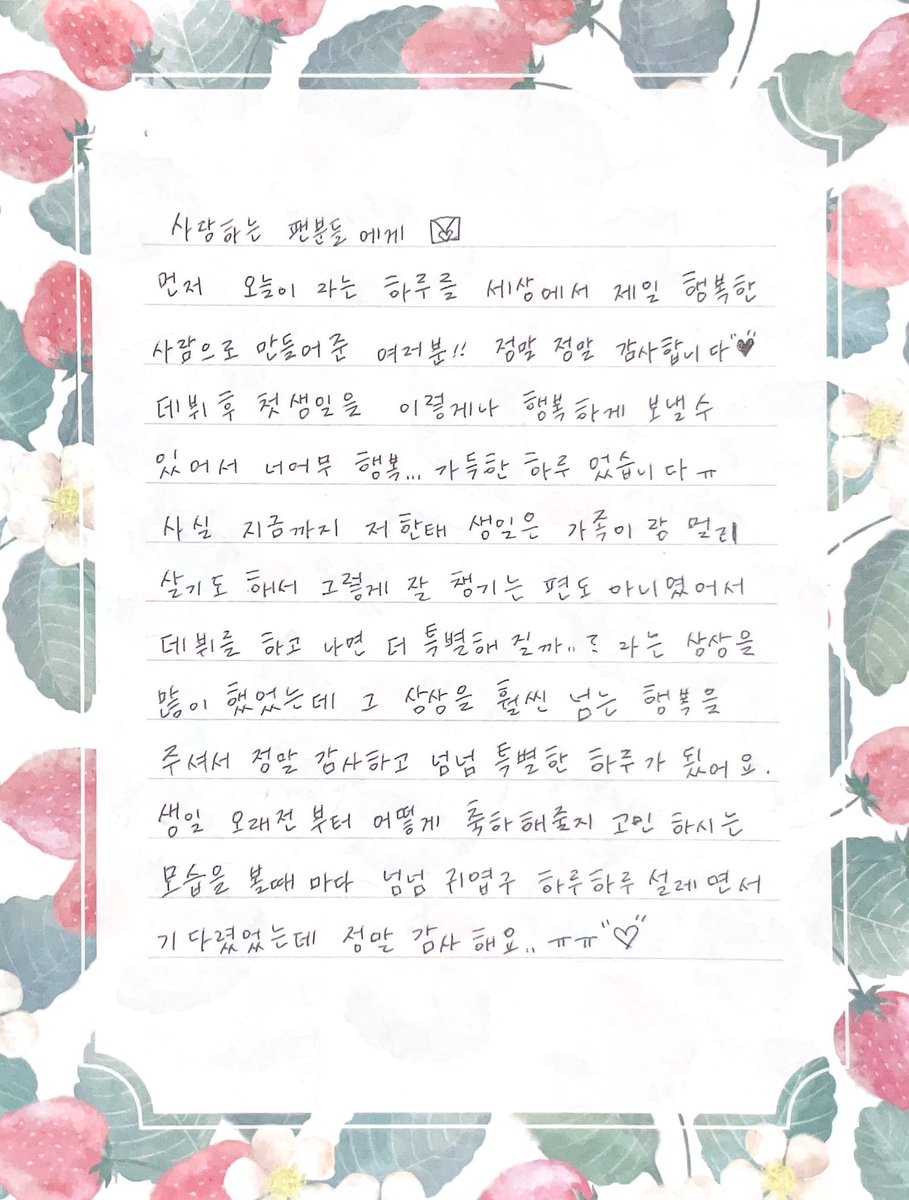 사랑하는 팬분들에게
먼저 오늘이 라는 하루를 세상에서 제일 행복한
사람으로 만들어준 여러분!! 정말 정말 감사합니다"♥"
데뷔후 첫생일을 이렇게나 행복하게 보낼수
있어서 너어무 행복... 가득한 하루 었습니다ㅠ
사실 지금까지 저한태 생일은 가족이랑 멀리
살기도 해서 그렇게 잘 챙기는 편도 아니였어서
데뷔를 하고 나면 더 특별해 질까.. 라는 상상을
많이 했었는데 그 상상을 훨씬 넘는 행복을
주셔서 정말 감사하고 넘넘 특별한 하루가 됬어요.
생일 오래전 부터 어떻게 축하해줄지 고민 하시는
모습을 볼때 마다 넘넘 귀엽구 하루하루 설레면서
기다렸었는데 정말 감사 해요.. ㅠㅠ"♡"